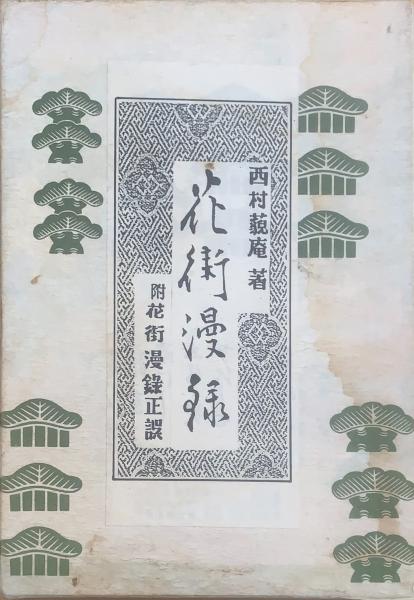 西村藐庵 著
花街漫録
附 花街漫錄正誤